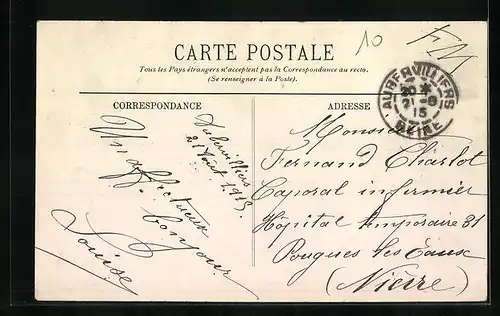 10
F.M.
CARTE POSTALE
Tous les Pays étrangers n'acceptent pas la Correspondance au recto.
(Se renseigner à la Poste).
CORRESPONDANCE
Aubervilliers
21 Août 1915.
Un affectueux
bonjour
Louise
ADRESSE
Monsieur
Fernand Charlot
Caporal infirmier
Hôpital temporaire 31
Pougues les Eaux
(Nièvre)
AUBERVILLIERS
20
21-8
15
SEINE